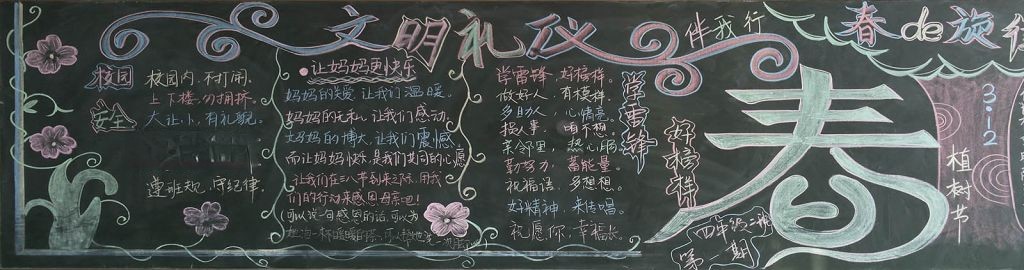 文明礼仪
伴我行
春de旋
校园
安全
校园内，不打闹，
上下楼，勿拥挤。
大让小，有礼貌。
遵班规，守纪律，
让妈妈更快乐
妈妈的爱，让我们温暖。
妈妈的无私，让我们感动。
妈妈的博大，让我们震憾
而让妈妈快乐是我们共同的心愿
让我们在三八节到来之际，用我
们的行动来感恩母亲吧！
可以说一句感恩的话，可以为
学雷锋
好榜样
学雷锋，好榜样。
做好人，有模样。
多助人，心情亮。
亲邻里，热心肠
勤劳力，蓄能量。
祝福语，多想想。
好精神，来传唱。
祝愿你，幸福长。
春
四年级二班
第一期
3·12
植树节